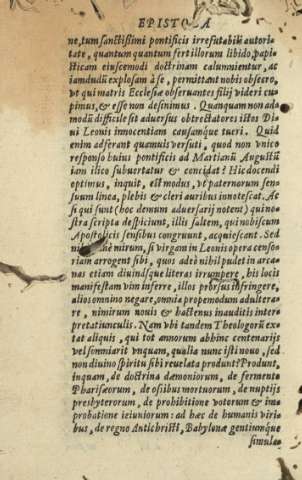 EPISTOLA
ne, tum sanctissimi pontificis irrefutabili autori
tate, quantum quantum fert illorum libido, papi
sticam eiuscemodi doctrinam calumnientur, ac
iamdudū explosam à se, permittant nobis obsecro,
vt qui matris Ecclesiæ obseruantes filij videri cu
pimus, & esse non desinimus. Quanquam non ad
modū difficile sit aduersus obtrectatores istos Di
ui Leonis innocentiam causamque tueri. Quid
enim adferant quamuis versuti, quod non vnico
responso huius pontificis ad Martianū Augustū
iam ilico subuertatur & concidat? Hic docendi
optimus, inquit, est modus, vt paternorum sen-
suum linea, plebis & cleri auribus innotescat. Ac
si qui sunt (hoc demum aduersarij notent) qui no-
stra scripta despiciunt, illi saltem, qui nobiscum
Apostolicis sensibus congruunt, acquiescant. Sed
mirum, si virgam in Leonis opera censo
riam arrogent sibi, quos adeò nihil pudet in arca-
nas etiam diuinasque literas irrumpere, his locis
manifestam vim inferre, illos prorsus infringere,
alios omnino negare, omnia propemodum adultera-
re, nimirum nouis & hactenus inauditis inter
pretatiunculis. Nam vbi tandem Theologorū ex-
tat aliquis, qui tot annorum abhinc centenarijs
vel somniarit vnquam, qualia nunc isti nouo, sed
non diuino spiritu sibi reuelata produnt? Produnt,
inquam, de doctrina dæmoniorum, de fermento
Pharisæorum, de ossibus mortuorum, de nuptijs
presbyterorum, de prohibitione votorum & im
probatione ieiuniorum: ad hæc de humanis viri-
bus, de regno Antichristi, Babylonæ gentiumque
simula-